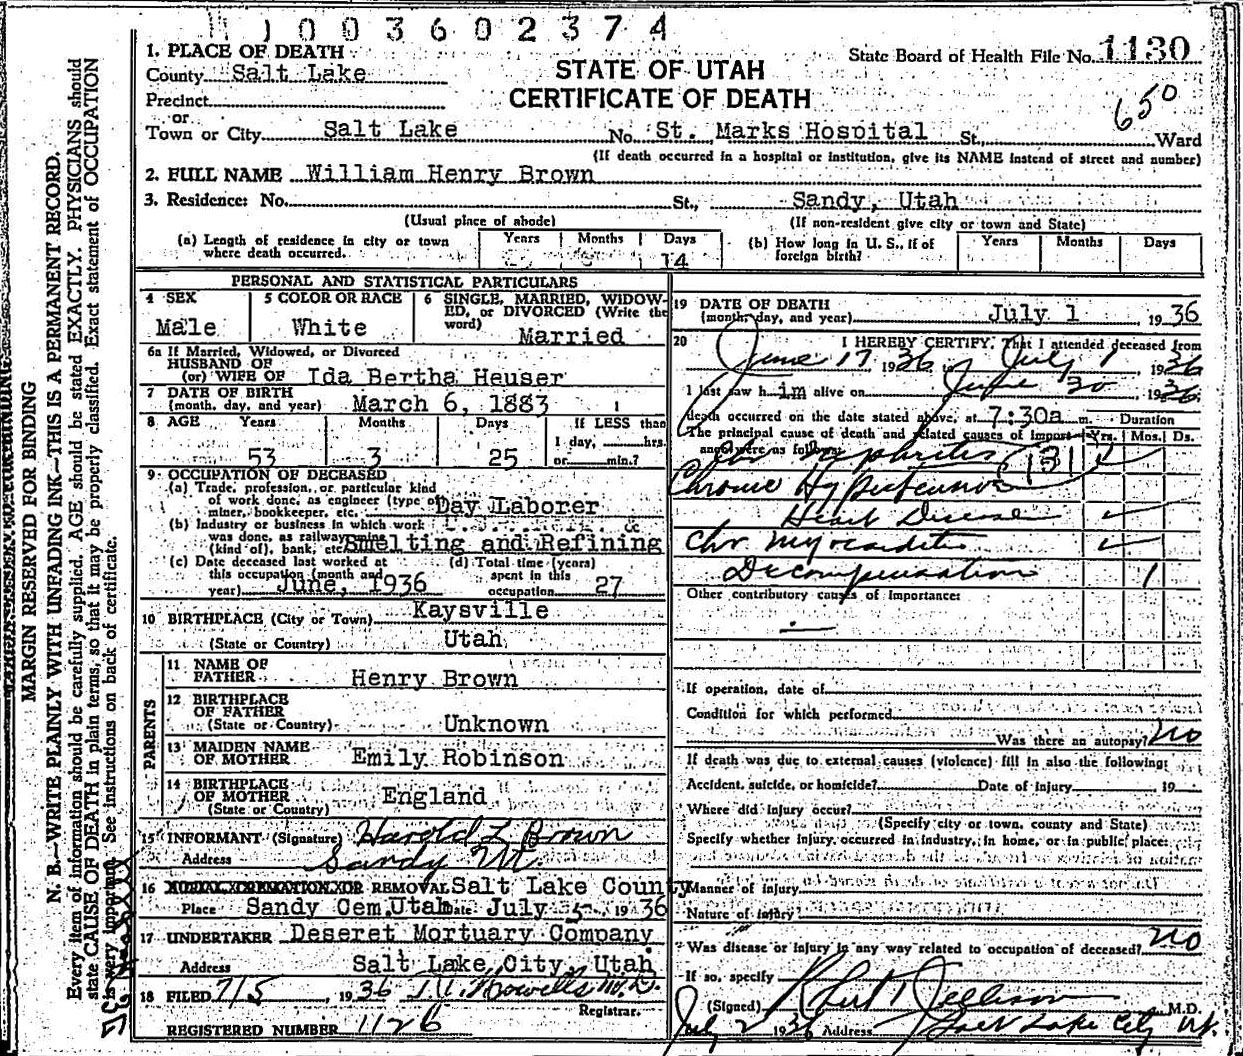 1003602374
1. PLACE OF DEATH
State Board of Health File No. 1130
County Salt Lake
STATE OF UTAH
CERTIFICATE OF DEATH
Precinct
or
650
Town or City Salt Lake No. St. Marks Hospital St., Ward
(If death occurred in a hospital or institution, give its NAME instead of street and number)
2. FULL NAME William Henry Brown
3. Residence: No. St., Sandy, Utah
(Usual place of abode) (If non-resident give city or town and State)
(a) Length of residence in city or town where death occurred. Years Months Days 14
(b) How long in U. S., if of foreign birth? Years Months Days
PERSONAL AND STATISTICAL PARTICULARS
4 SEX Male
5 COLOR OR RACE White
6 SINGLE, MARRIED, WIDOWED, OR DIVORCED (Write the word) Married
6a If Married, Widowed, or Divorced
HUSBAND OF
(or) WIFE OF Ida Bertha Heuser
7 DATE OF BIRTH
(month, day, and year) March 6, 1883
8 AGE Years 53 Months 3 Days 25 If LESS than 1 day, hrs. or min.?
9 OCCUPATION OF DECEASED
(a) Trade, profession, or particular kind
of work done, as engineer (type of
miner, bookkeeper, etc. Day Laborer
(b) Industry or business in which work
was done, as railway, mine
(kind of), bank, etc. Smelting and Refining
(c) Date deceased last worked at
this occupation (month and
year) June, 1936
(d) Total time (years)
spent in this
occupation 27
10 BIRTHPLACE (City or Town) Kaysville
(State or Country) Utah
PARENTS
11 NAME OF
FATHER Henry Brown
12 BIRTHPLACE
OF FATHER
(State or Country) Unknown
13 MAIDEN NAME
OF MOTHER Emily Robinson
14 BIRTHPLACE
OF MOTHER
(State or Country) England
15 INFORMANT (Signature) Harold L Brown
Address Sandy Ut.
16 BURIAL, CREMATION, OR REMOVAL Salt Lake County
Place Sandy Cem. Utah Date July 5, 1936
17 UNDERTAKER Deseret Mortuary Company
Address Salt Lake City, Utah
18 FILED 7/5, 1936
Registrar.
REGISTERED NUMBER 1126
19 DATE OF DEATH
(month, day, and year) July 1, 1936
20 I HEREBY CERTIFY, That I attended deceased from
June 17 1936 to July 1, 1936
I last saw him alive on June 30, 1936
death occurred on the date stated above, at 7:30a m. Duration
The principal cause of death and related causes of importance Yrs. Mos. Ds.
and were as follows:
Chr Nephritis 131
Chronic Hypertension
Heart Disease
Chr Myocarditis
Decompensation 1
Other contributory causes of importance:
If operation, date of
Condition for which performed
Was there an autopsy? no
If death was due to external causes (violence) fill in also the following:
Accident, suicide, or homicide? Date of injury, 19
Where did injury occur?
(Specify city or town, county and State)
Specify whether injury occurred in industry, in home, or in public place:
Manner of injury
Nature of injury
Was disease or injury in any way related to occupation of deceased? no
If so, specify
(Signed) M.D.
July 2 1936 Address Salt Lake City Ut.
MARGIN RESERVED FOR BINDING
N. B.—WRITE PLAINLY WITH UNFADING INK—THIS IS A PERMANENT RECORD.
Every item of information should be carefully supplied. AGE should be stated EXACTLY. PHYSICIANS should
state CAUSE OF DEATH in plain terms, so that it may be properly classified. Exact statement of OCCUPATION
is very important. See instructions on back of certificate.